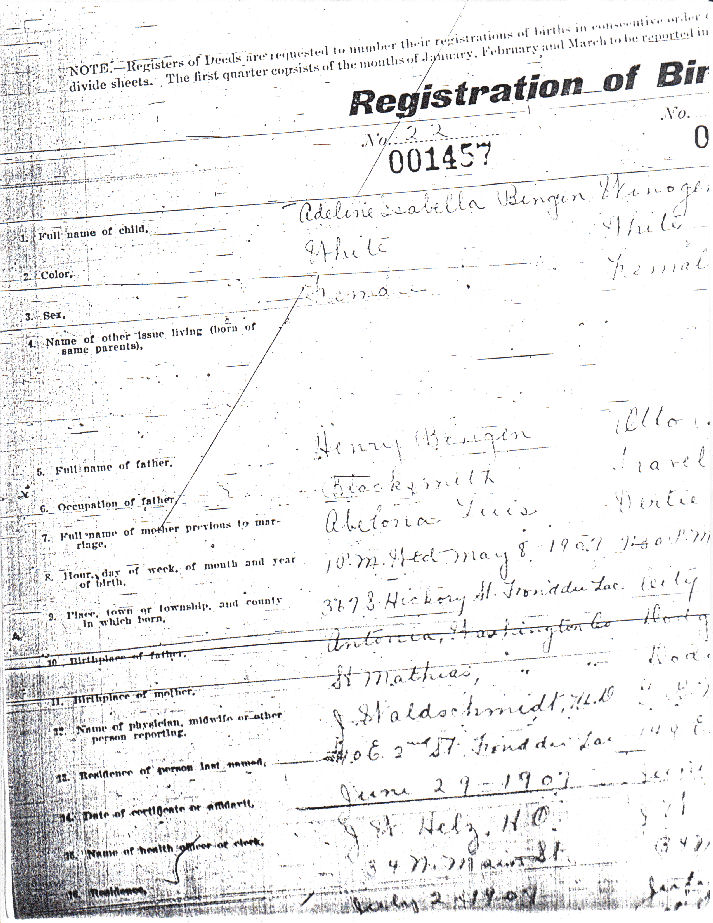 NOTE.—Registers of Deeds are requested to number their registrations of births in consecutive order
divide sheets. The first quarter consists of the months of January, February and March to be reported in
Registration of Bir
No. 22 No.
001457 0
1. Full name of child, Adeline Isabella Bingen
2. Color, White White
3. Sex, Female Femal
4. Name of other issue living (born of
same parents),
5. Full name of father, Henry Bingen
6. Occupation of father, Blacksmith Travel
7. Full name of mother previous to mar-
riage,
8. Hour, day of week, of month and year
of birth, Wed May 8, 1907
9. Place, town or township, and county
in which born, Hickory St. Fond du Lac City
10. Birthplace of father, Washington Co
11. Birthplace of mother, St Mathias, " "
12. Name of physician, midwife or other
person reporting, J Waldschmidt, M.D
13. Residence of person last named, E. 2nd St. Fond du Lac
14. Date of certificate or affidavit, June 29-1907
15. Name of health officer or clerk, Helz, H.O.
16. Residence, 34 N. Main St.
July 2 1907